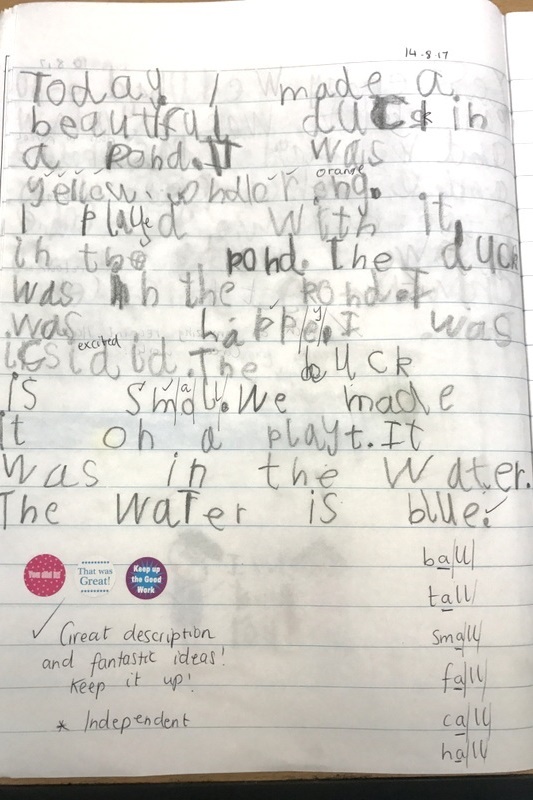 14.8.17
Today I made a
beautiful duck in
a pond. It was
orange
yellow. ondlo reng.
I played with it
in the pond. The duck
was in the pond. I
was happey. I was
excited
icsidid. The duck
is small. We made
it on a playt. It
was in the water.
The water is blue.
ball
That was Great!
Keep up the Good Work
tall
Great description
small
and fantastic ideas!
Keep it up!
fall
* Independent
call
hall